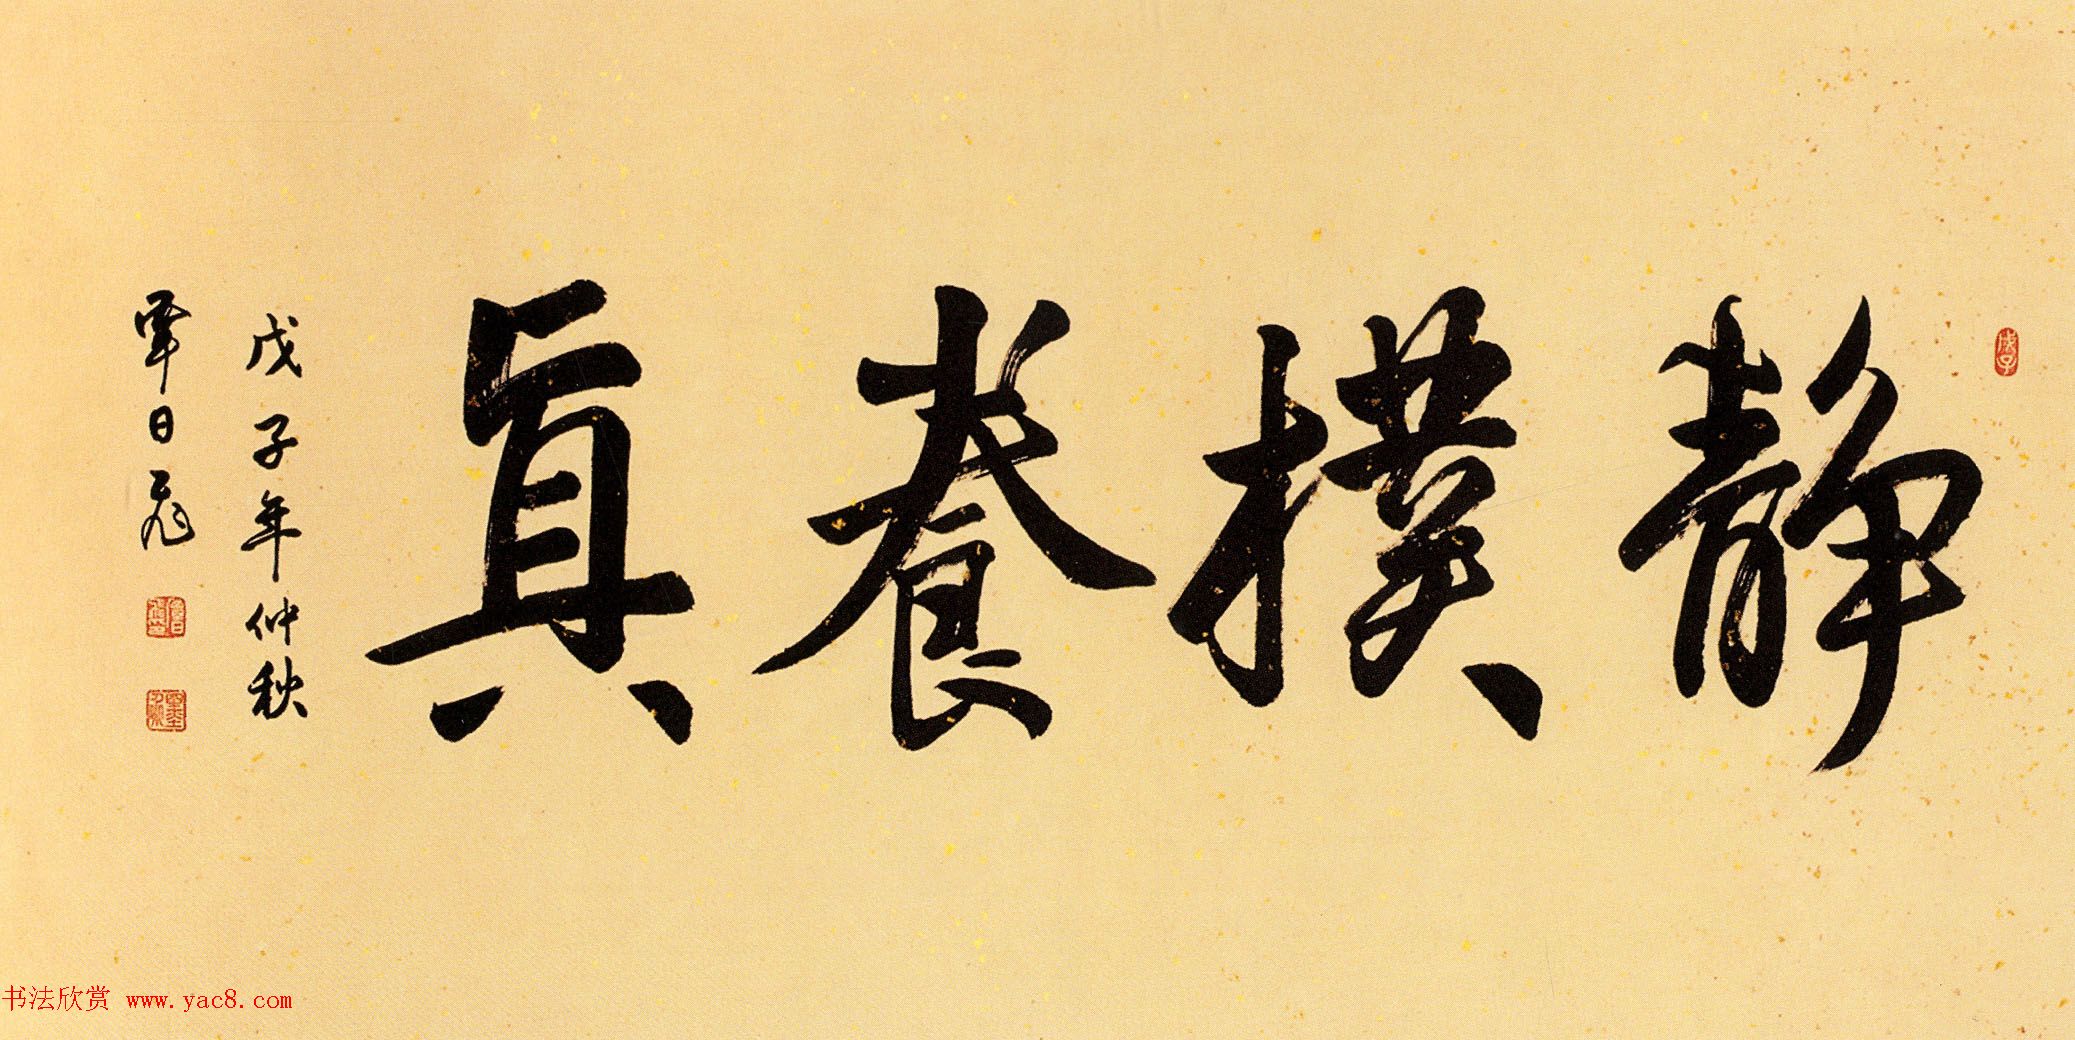 静樸養真
戊子年仲秋
覃日飛
戊子
书法欣赏 www.yac8.com